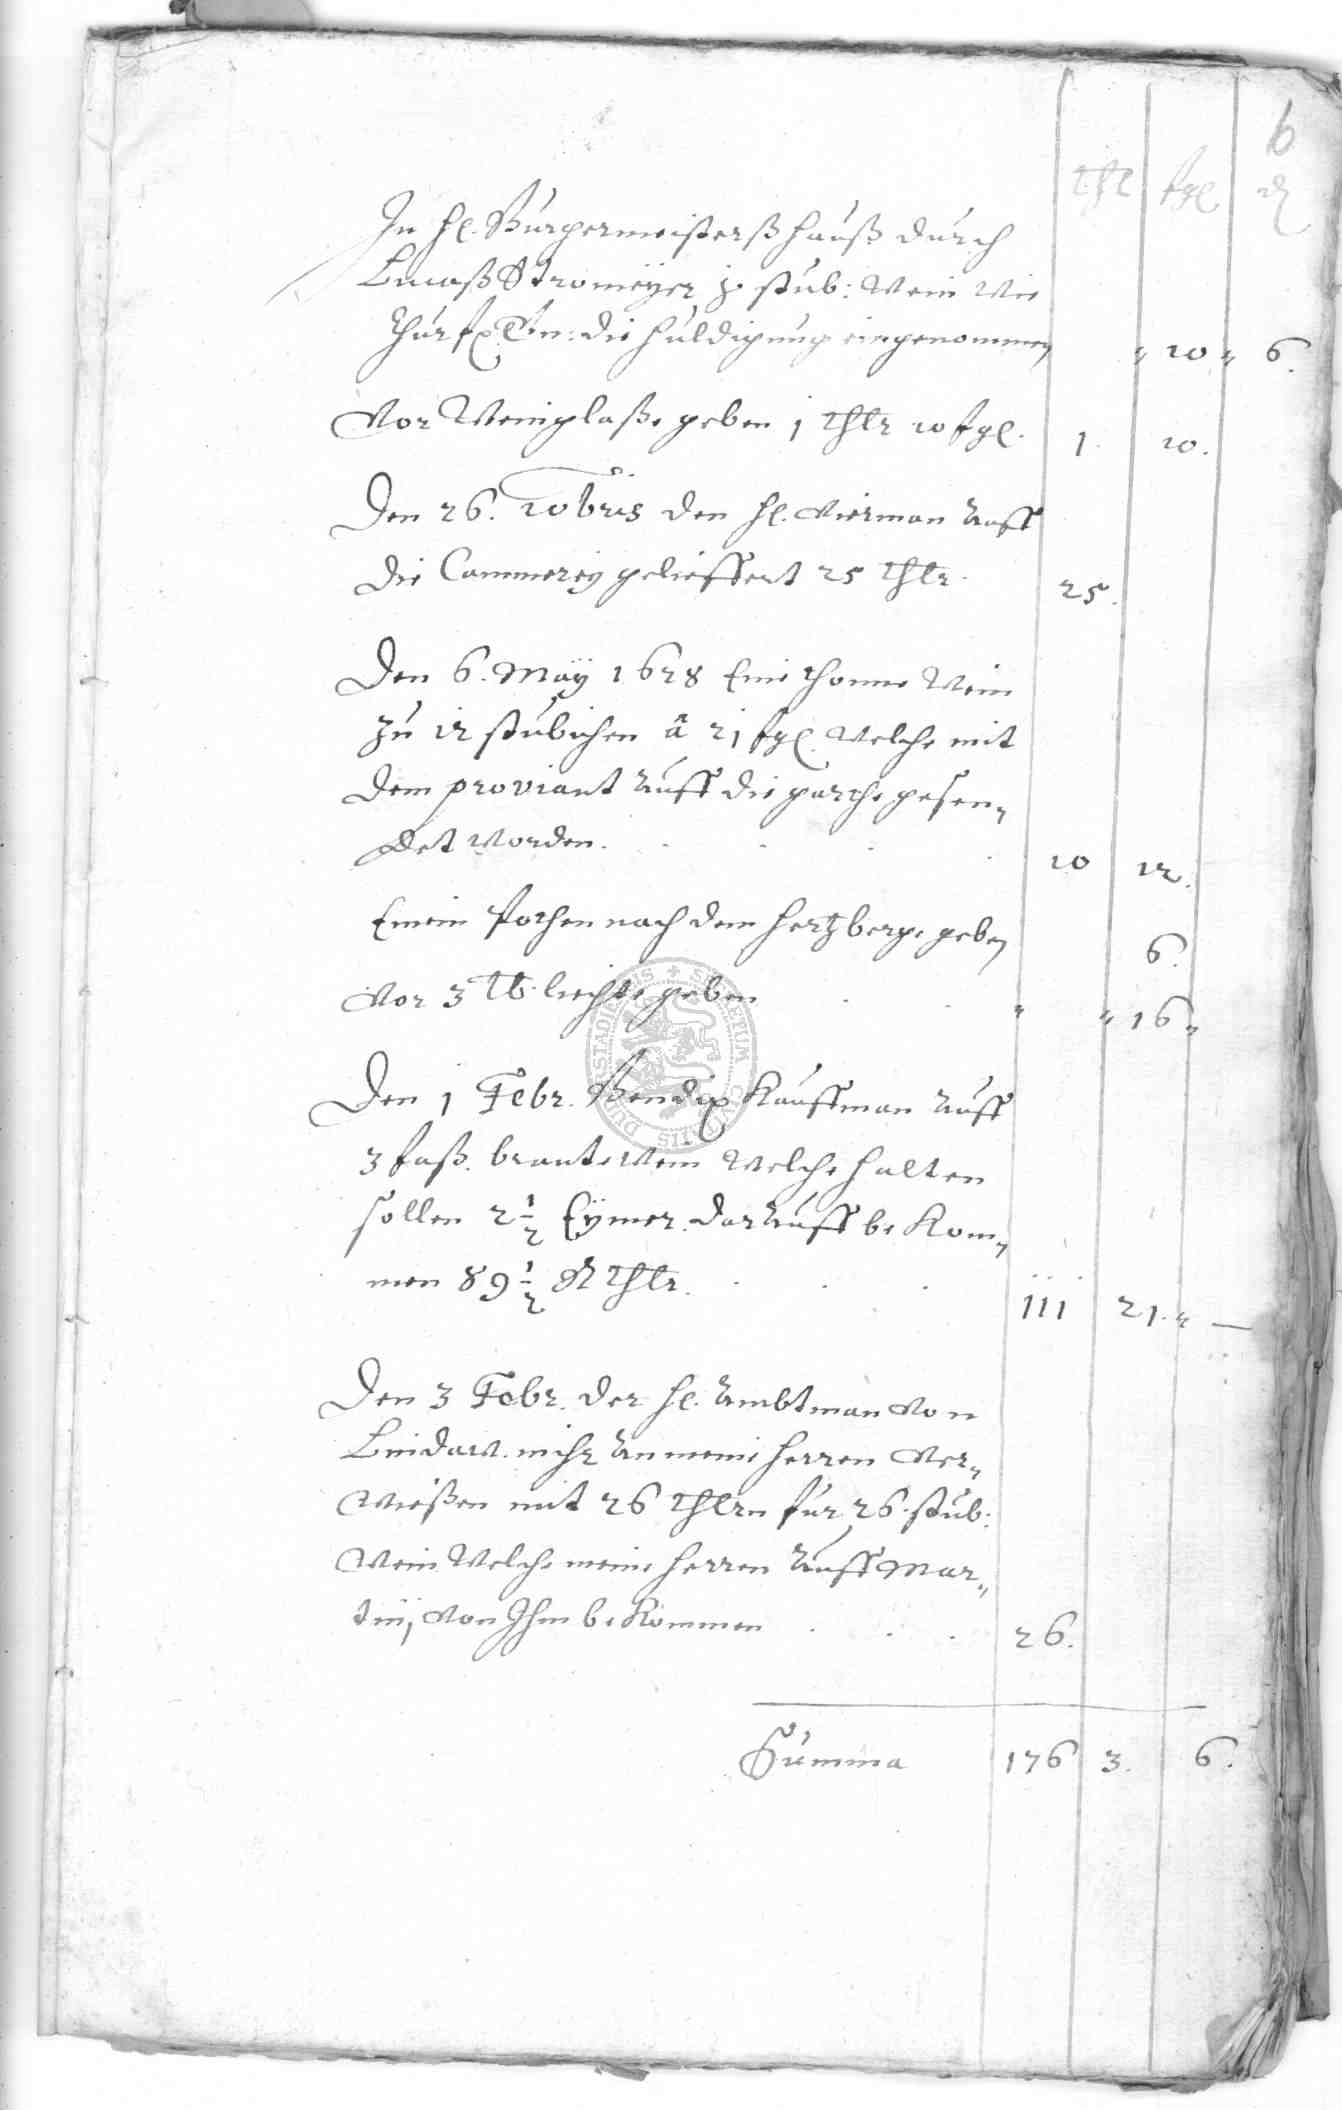 6
thl fgl d
In hl. Burgermeisterß hauß durch
Lucaß Stromeyer stub: Wein Wie
Churf die huldigung eingenommen " 10 " 6.
Vor Weinglaße geben 1 thlr 10 fgl. 1. 10.
Den 26. 10bris den hl. Vierman auff
die Cammerey gelieffert 25 thlr. 25.
Den 6. Maÿ 1628 Eine thonne Wein
zu 12 stubichen â 21 fgl. Welche mit
dem proviant auff die garthe gesen„
det worden. 10 12.
Einem bothen nach dem Hertzberge geben 6.
Vor 3 lb. liechte geben " " 16 "
Den 1 Febr. Bendix Kauffman auff
3 faß. brantewein Welche halten
sollen 2½ Eÿmer. darauff bekom„
men 89½ R thlr. 111 21. " —
Den 3 Febr. der hl. Ambtman von
Lindaw. mihr an meine herren ver„
wießen mit 26 thlrn fur 26. stub:
Wein Welche meine herren auff Mar„
tinj von Ihm bekommen 26.
Summa 176 3. 6.
SECRETUM CIVITATIS DUDERSTADIENSIS